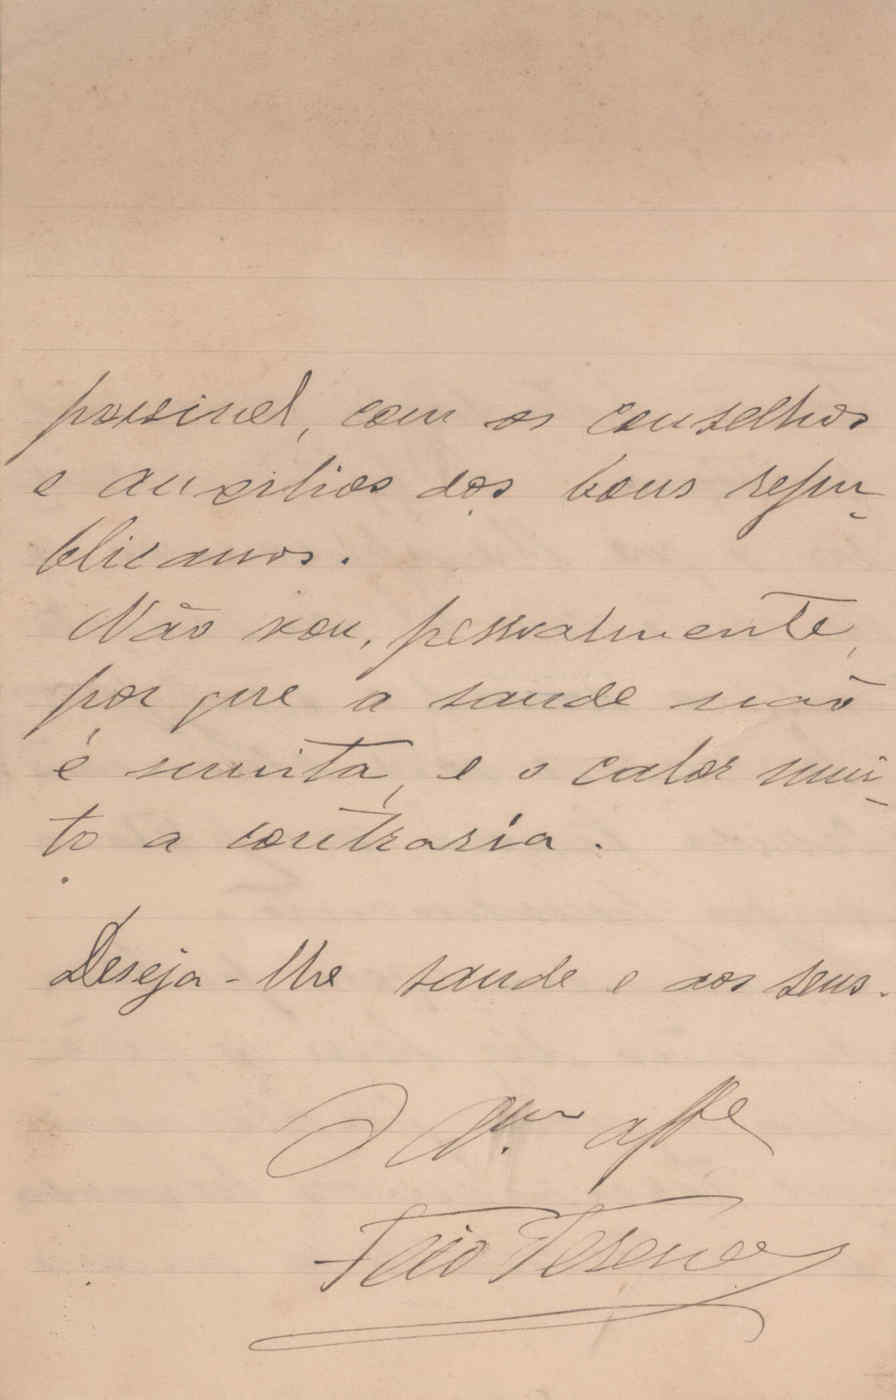 possivel, com os conselhos
e auxilios dos bons repu-
blicanos.
Não vou, pessoalmente,
por que a saude não
é muita, e o calor mui-
to a contraria.
Deseja-lhe saude e aos seus.
O Am.º aff.e
Feio Terenas